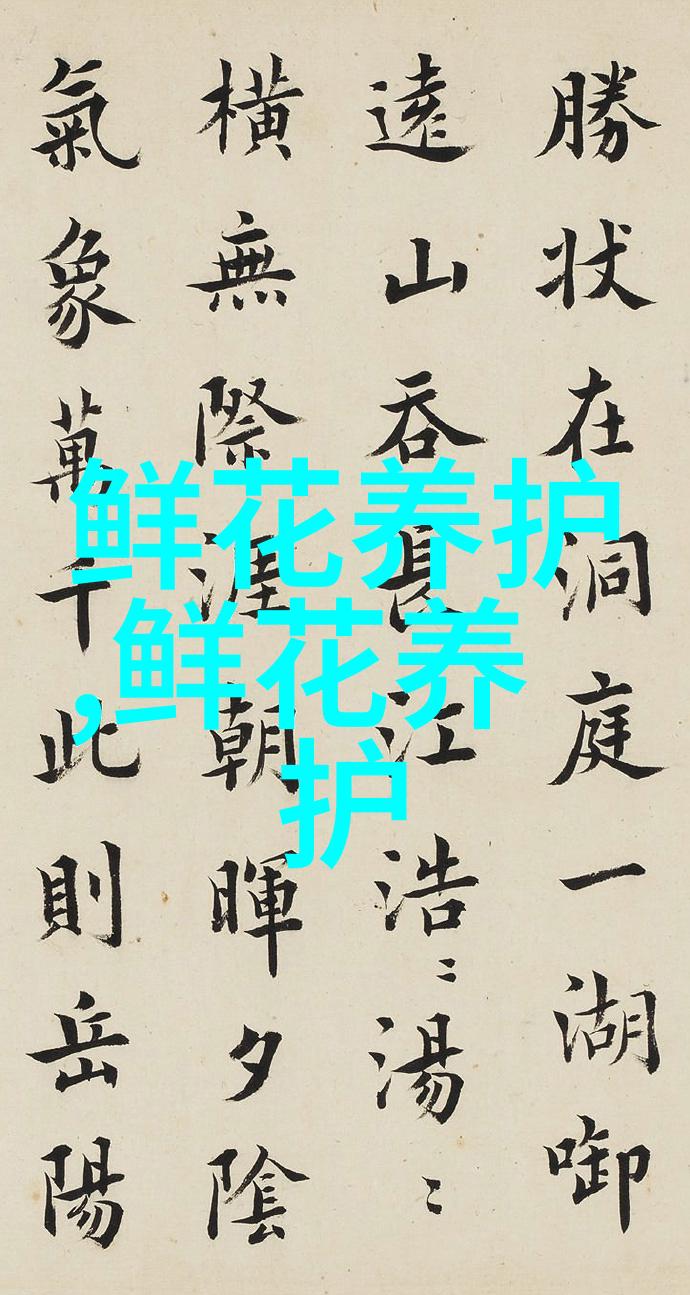 勝状在洞庭一湖啣
遠山吞長江浩〻湯〻
横無際涯朝暉夕陰
氣象萬千此則岳陽
鲜花养护
,鲜花养
护